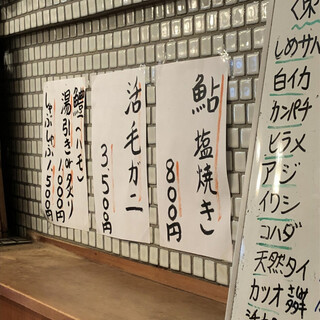 しめサバ
白イカ
カンパチ
ヒラメ
アジ
イワシ
コハダ
天然タイ
カツオ
鮎塩焼き
800円
活毛ガニ
3,500円
鱧(ハモ)
湯引きor天ぷら
1,000円
しゃぶしゃぶ1,500円